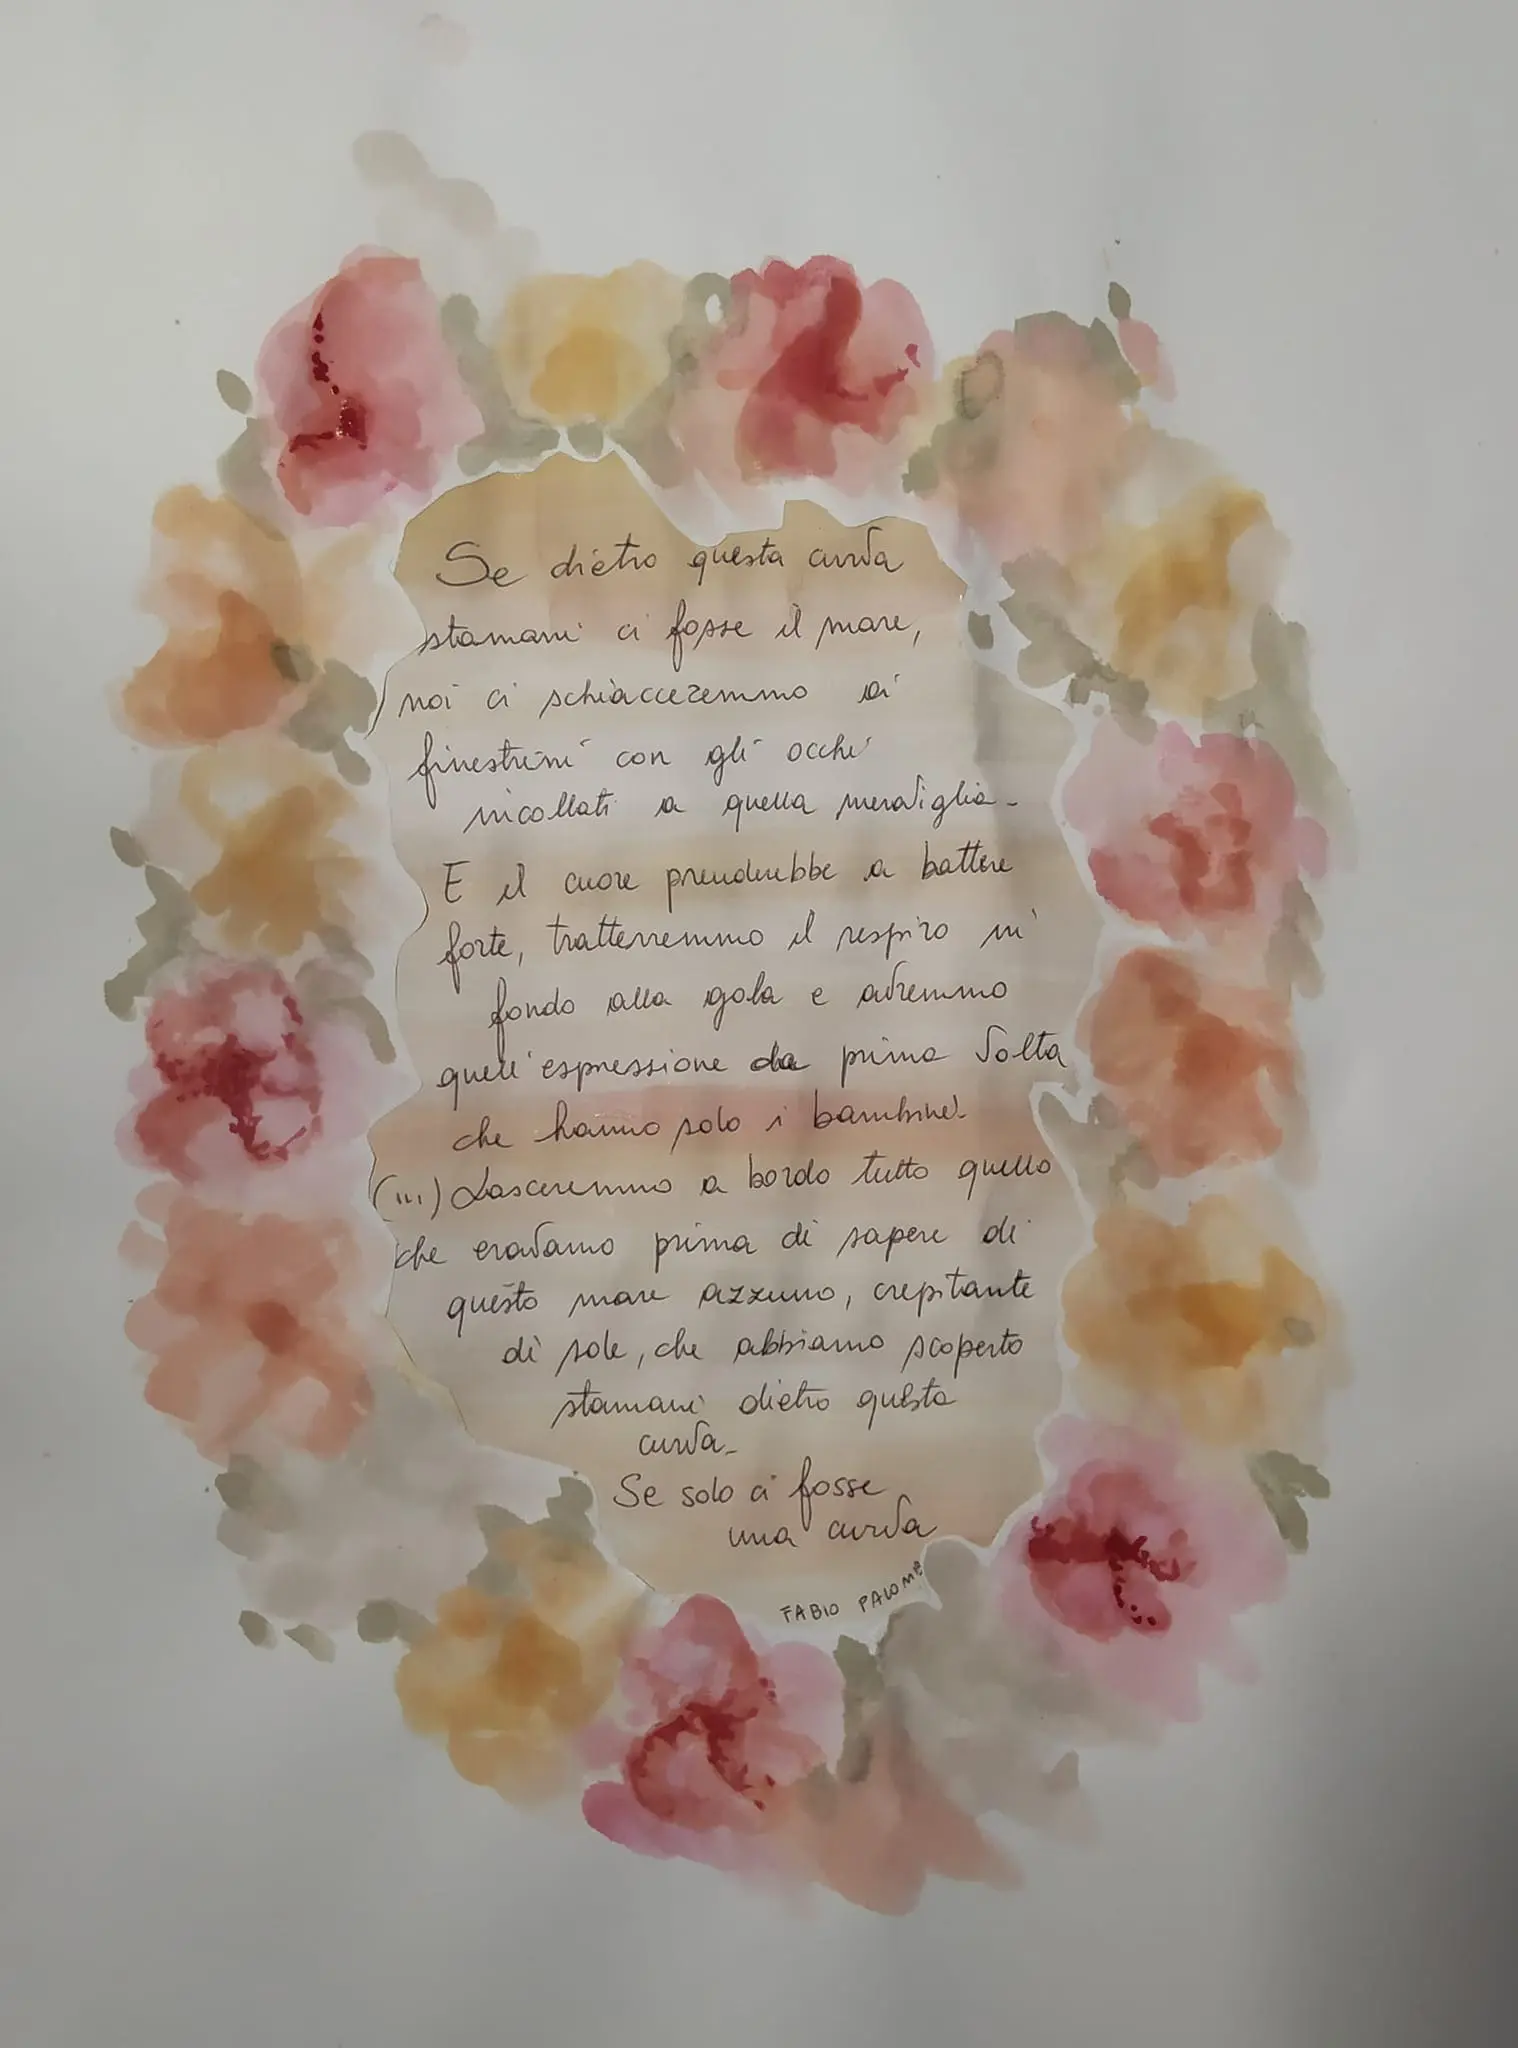 Se dietro questa curva
stamani ci fosse il mare,
noi ci schiacceremmo ai
finestrini con gli occhi
incollati a quella meraviglia.
E il cuore prenderebbe a battere
forte, tratterremmo il respiro in
fondo alla gola e avremmo
quell'espressione da prima volta
che hanno solo i bambini.
(...) Lasceremmo a bordo tutto quello
che eravamo prima di sapere di
questo mare azzurro, crepitante
di sole, che abbiamo scoperto
stamani dietro questa
curva.
Se solo ci fosse
una curva
FABIO PALOMB